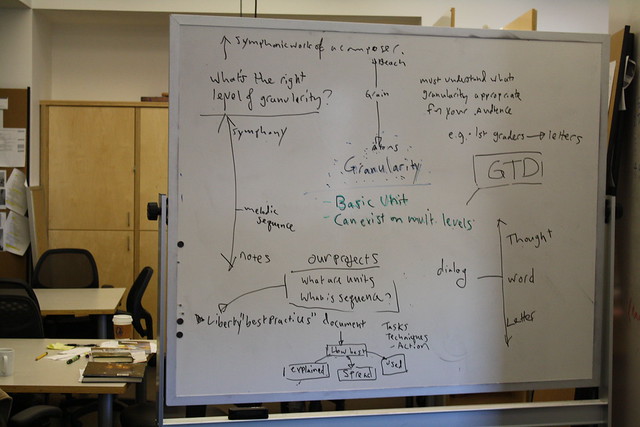 Symphonic work of a composer.
Beach
what's the right
level of granularity?
Grain
must understand whats
granularity appropriate
for your audience
symphony
e.g. 1st graders → letters
atoms
Granularity
GTD
- Basic Unit
- Can exist on mult. levels
melodic
sequence
Thought
notes
our projects
dialog
word
what are units
what is sequence?
Letter
Liberty "best practices" document
Tasks
Techniques
- Action
How best
explained
Spread
Used